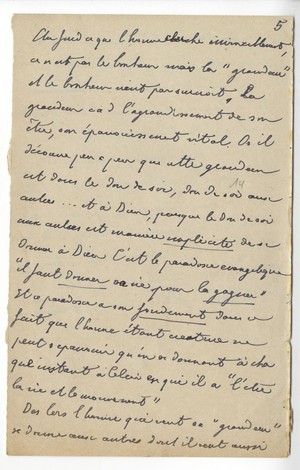 5
Au fond ce que l'homme cherche invinciblement,
ce n'est pas le bonheur mais la "grandeur"
et le bonheur vient par surcroît. La
grandeur c à d l'agrandissement de son
être, son épanouissement vital. Or il
découvre peu à peu que cette grandeur
est dans le don de soi, don de soi aux
autres ... et à Dieu, puisque le don de soi
aux autres est manière implicite de se
donner à Dieu. C'est le paradoxe évangélique
"il faut donner sa vie pour la gagner"
Et ce paradoxe a son fondement dans ce
fait que l'homme étant créature ne
peut s'épanouir qu'en se donnant à cha
que instant à Celui en qui il a "l'être
la vie et le mouvement"
Dès lors l'homme qui veut sa "grandeur"
se donne aux autres dont il veut aussi